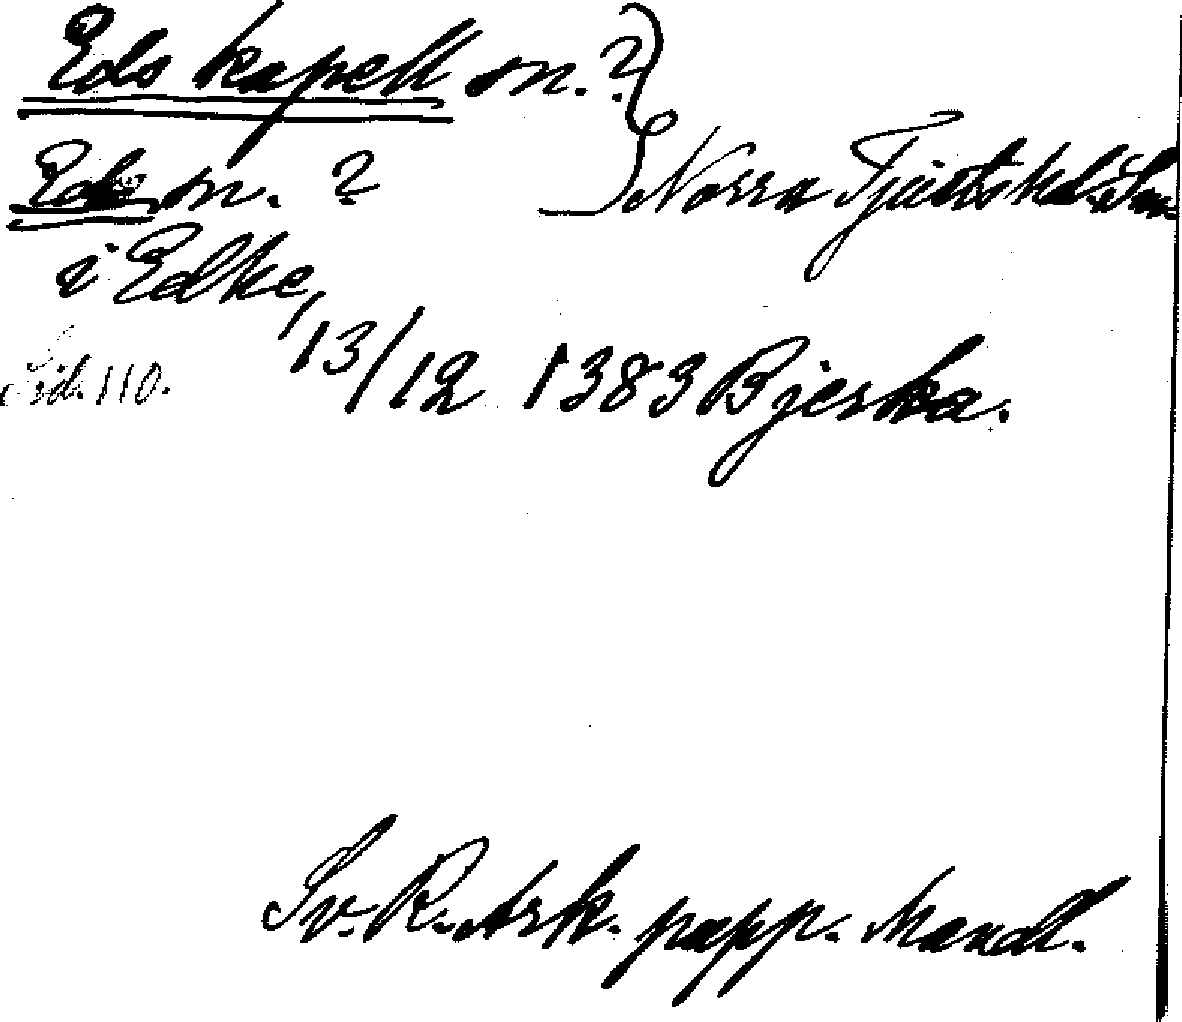 Eds kapell sn. ?
Eds sn. ?
Norra Tjusts hd. Sm.
i Edke,
13/12 1383 Bjerka.
Sid. 110.
Sv. R. Ark. papp. Handl.